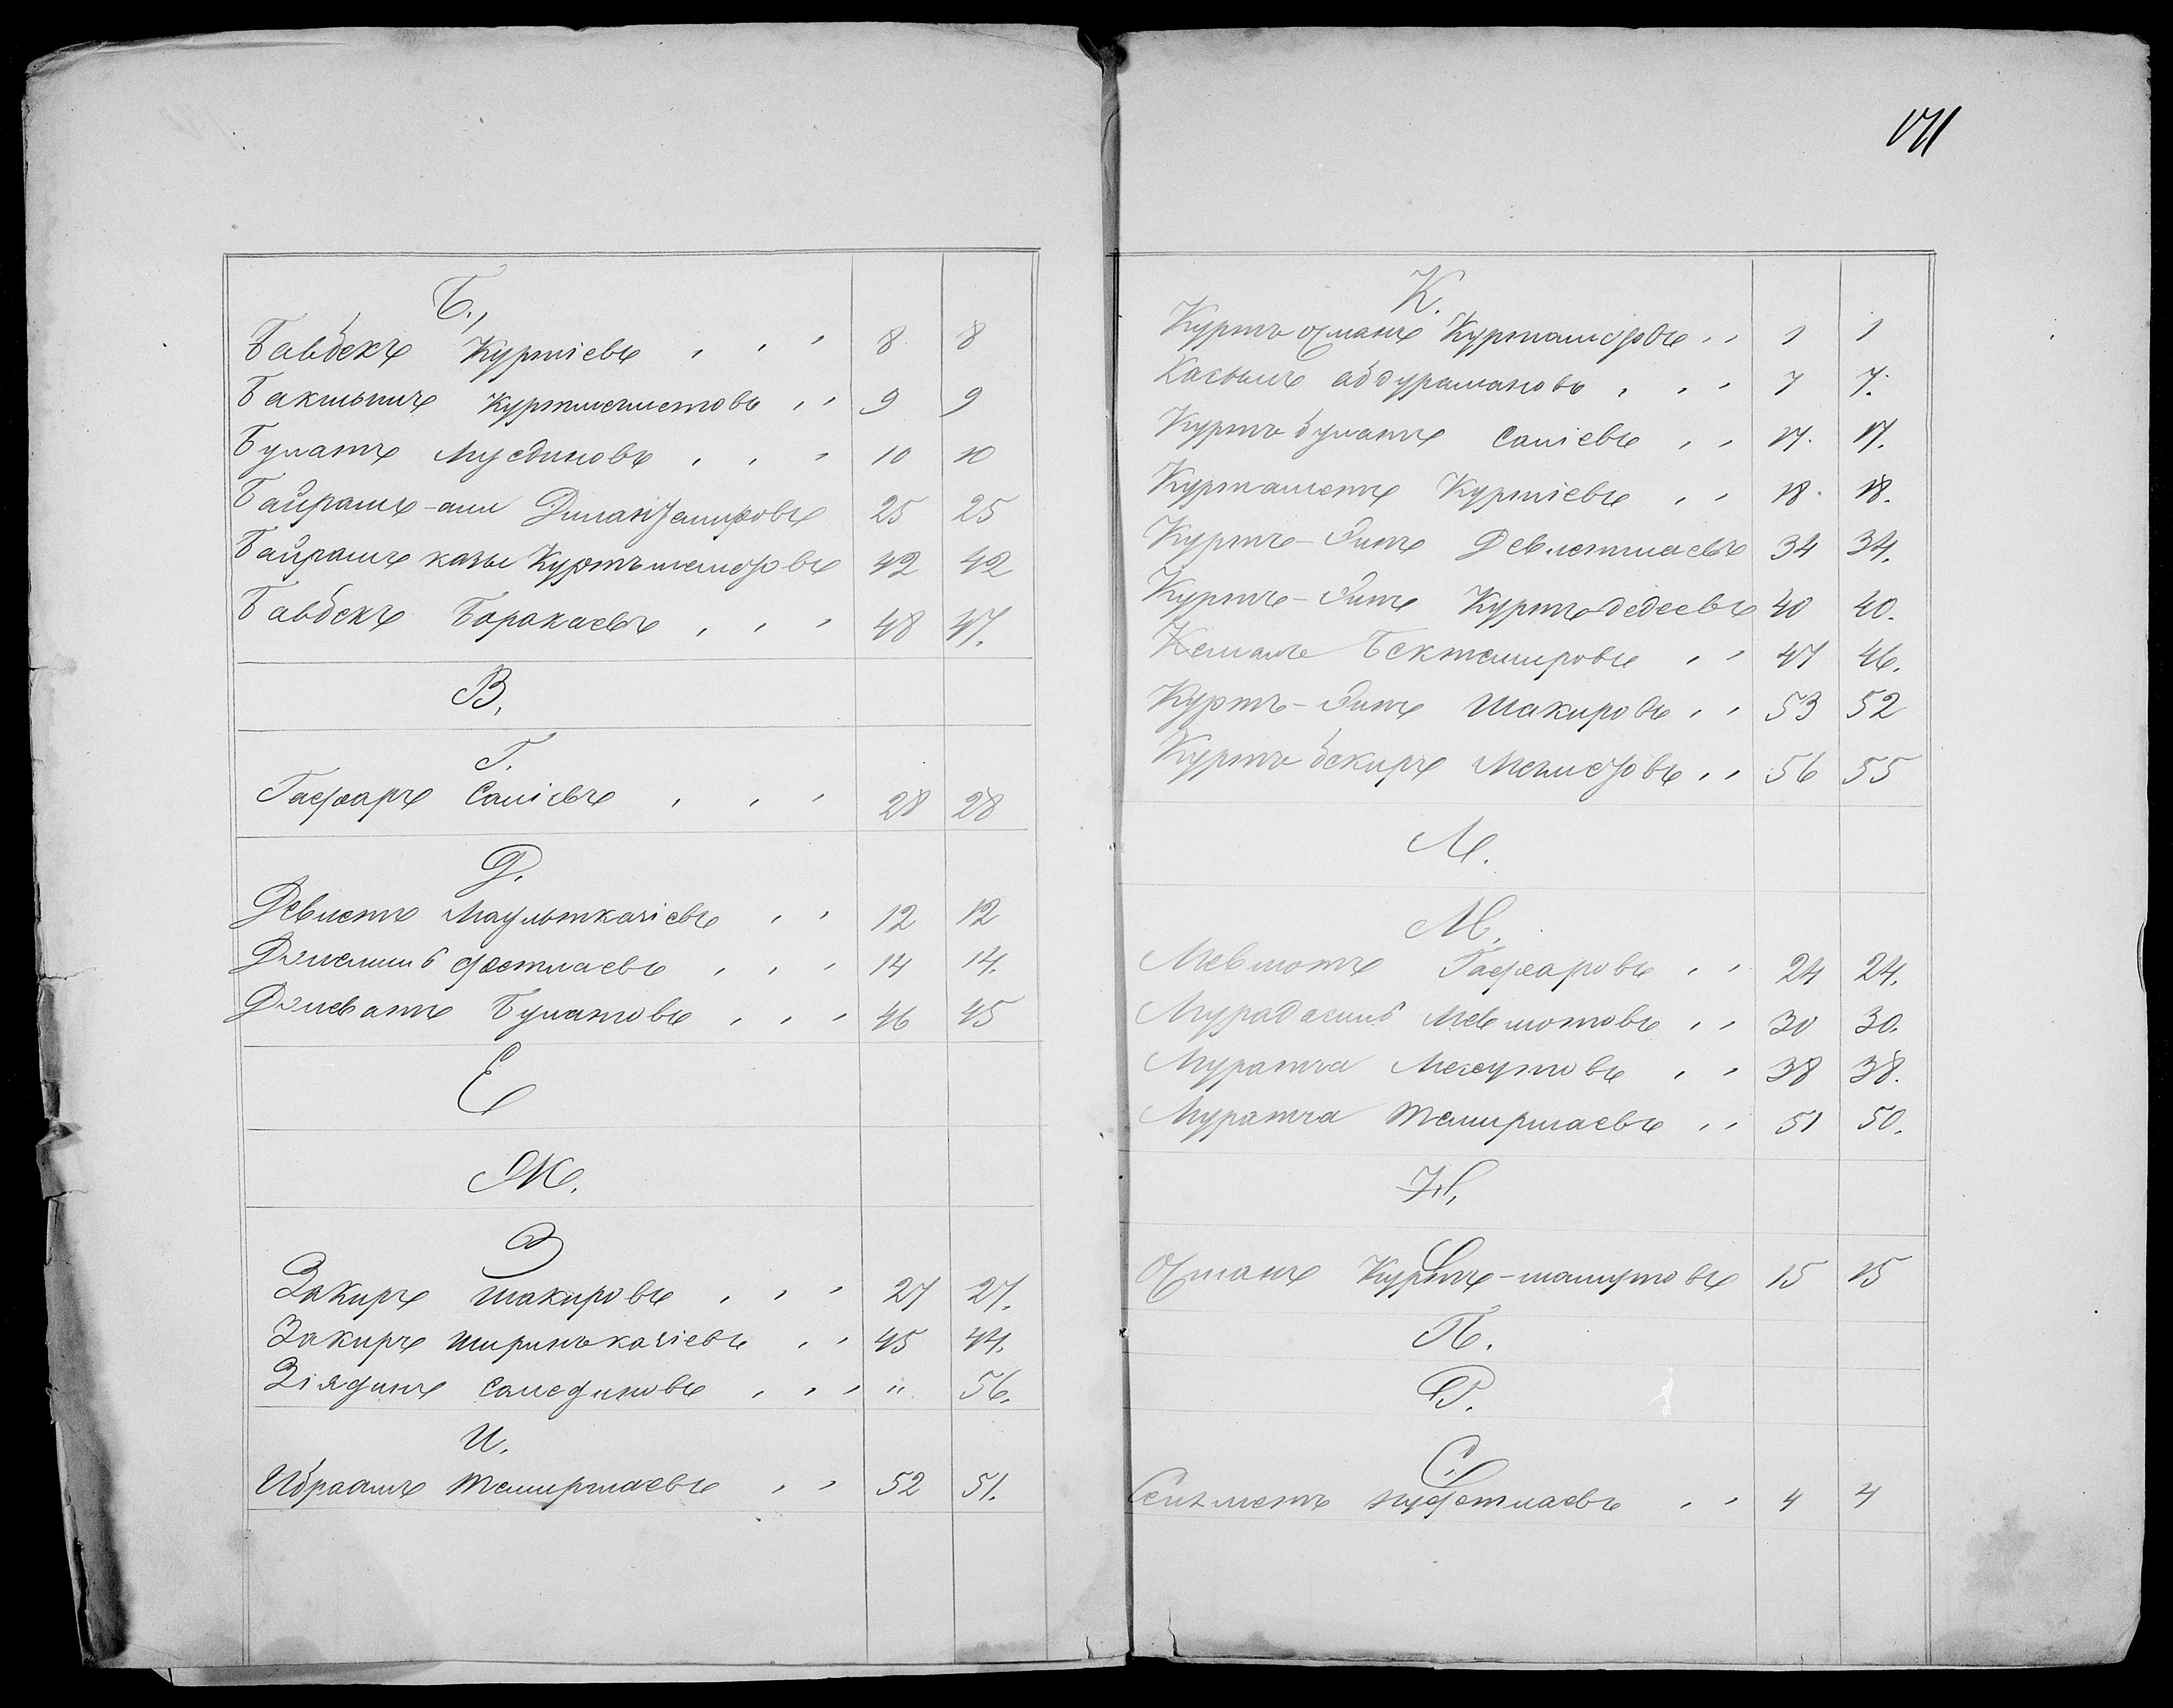 Б.,
Бавбекъ Куртіевъ 8 8
Бакшышъ Куртмеметовъ 9 9
Булатъ Мусдиновъ 10 10
Байрамъ-али 25 25
Байрамъ казы 42 42
Бавбекъ Боракаевъ 48 47.
В.
Г.
Гафаръ Саліевъ 28 28
Д.
Девлетъ 12 12
Джелиль Фетлаевъ 14 14.
Джеватъ Булатовъ 46 45
Е
Ж.
З
Закиръ Шакировъ 27 27.
Закиръ 45 44.
Зіядинъ Салединовъ " 56.
И.
Ибраамъ Темиршаевъ 52 51.
171
К.
Куртъ Османъ 1 1
Касымъ абдурамановъ 7 7.
Куртъ булатъ Саліевъ 17. 17.
Куртаметъ Куртіевъ 18. 18.
Куртъ-Аитъ Девлетшаевъ 34 34.
Куртъ-Аитъ Куртъдедеевъ 40 40.
Кемалъ Бектемировъ 47 46.
Куртъ-Аитъ Шакировъ 53 52
Куртъ бекиръ 56 55
Л.
М.
Мевлютъ Гафаровъ 24 24.
Мурадасиль Мевлютовъ 30 30.
Муратча 38 38.
Муратча Темиршаевъ 51 50.
Н.
О
Османъ Куртъ-мамутовъ 15 15
П.
Р.
С.
Сеитметъ 4 4